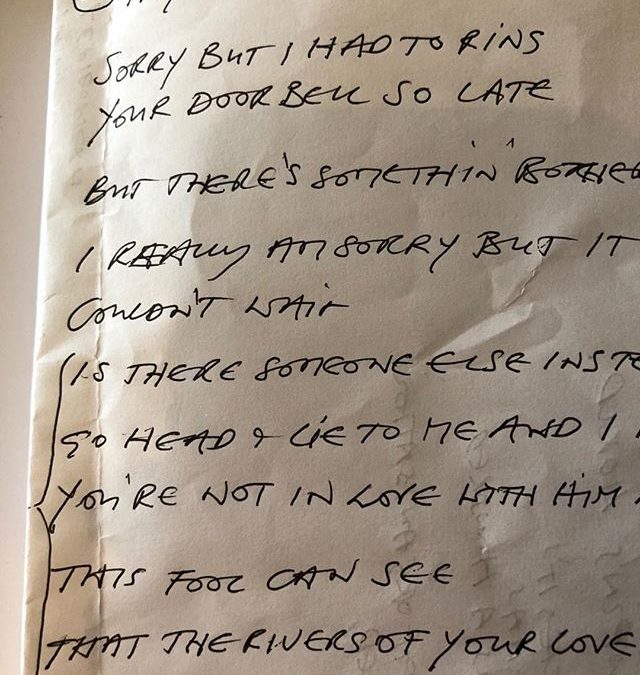 SORRY BUT I HAD TO RING
YOUR DOOR BELL SO LATE
BUT THERE'S SOMETHIN'
I REALLY AM SORRY BUT IT
COULDN'T WAIT
IS THERE SOMEONE ELSE
GO HEAD & LIE TO ME AND I
YOU'RE NOT IN LOVE WITH HIM
THIS FOOL CAN SEE
THAT THE RIVERS OF YOUR LOVE